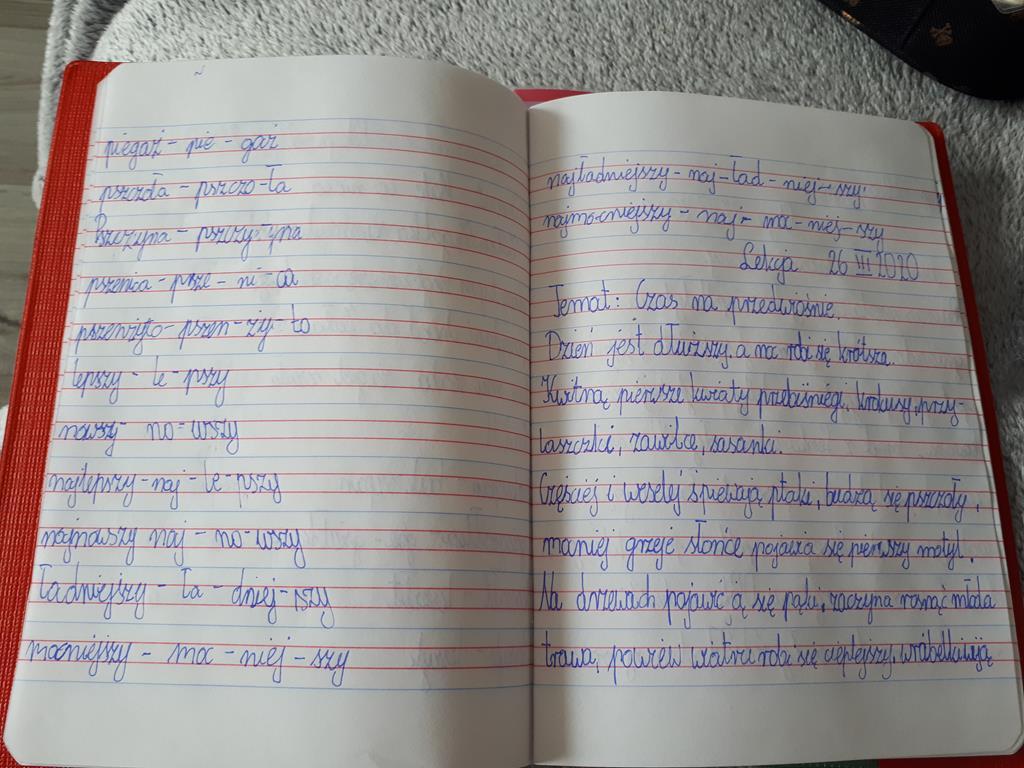 piegaż - pie - gaż
pszczoła - pszczo-ła
Pszczyna - pszczy-yna
pszenica - psze - ni - ca
pszenżyto - pszen - ży - to
lepszy - le - pszy
nowszy - no - wszy
najlepszy - naj - le - pszy
najnowszy naj - no - wszy
ładniejszy - ła - dniej - szy
mocniejszy - moc - niej - szy
najładniejszy - naj - ład - niej - szy
najmocniejszy - naj - moc - niej - szy
Lekcja 26 III 2020
Temat: Czas na przedwiośnie.
Dzień jest dłuższy, a noc robi się krótsza.
Kwitną pierwsze kwiaty przebiśniegi, krokusy, przy-
laszczki, zawilce, sasanki.
Częściej i weselej śpiewają ptaki, budzą się pszczoły,
mocniej grzeje słońce pojawia się pierwszy motyl.
Na drzewach pojawić ą się pąki, zaczyna rosnąć młoda
trawa, powiew wiatru robi się cieplejszy, wróbel